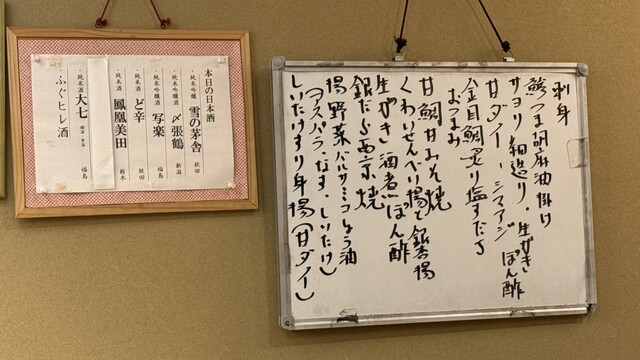 本日の日本酒
・純米吟醸酒 雪の茅舎 秋田
・純米吟醸酒 〆張鶴 新潟
・純米吟醸酒 写楽 福島
・純米酒 ど辛 秋田
・純米酒 鳳凰美田 栃木
・純米酒 大七 福島
・ふぐヒレ酒
刺身
鯵つま胡麻油掛け
サヨリ細造り・生がきぽん酢
甘ダイ・シマアジ
金目鯛炙り塩すだち
おつまみ
甘鯛甘みそ焼
くわいせんべい揚と銀杏揚
生がき酒煮ぽん酢
銀だら西京焼
揚野菜バルサミコしょう油
(アスパラ・なす・しいたけ)
しいたけすり身揚(甘ダイ)